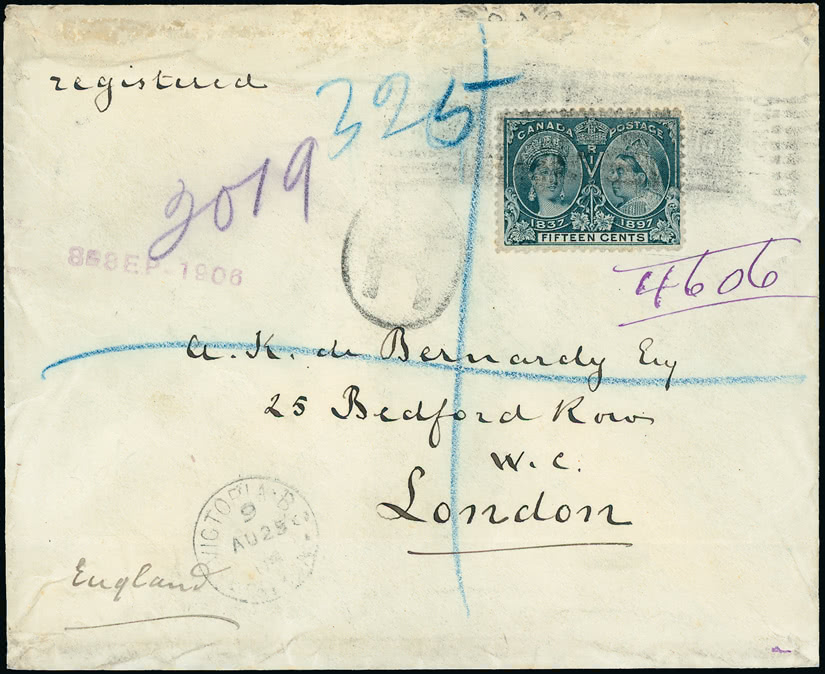 registered
325
3019
8 SEP 1906
R
CANADA POSTAGE
V R I
1837 1897
FIFTEEN CENTS
4606
A. K. de Bernardy Esq
25 Bedford Row
W.C.
London
VICTORIA B.C.
9
AU 25
England